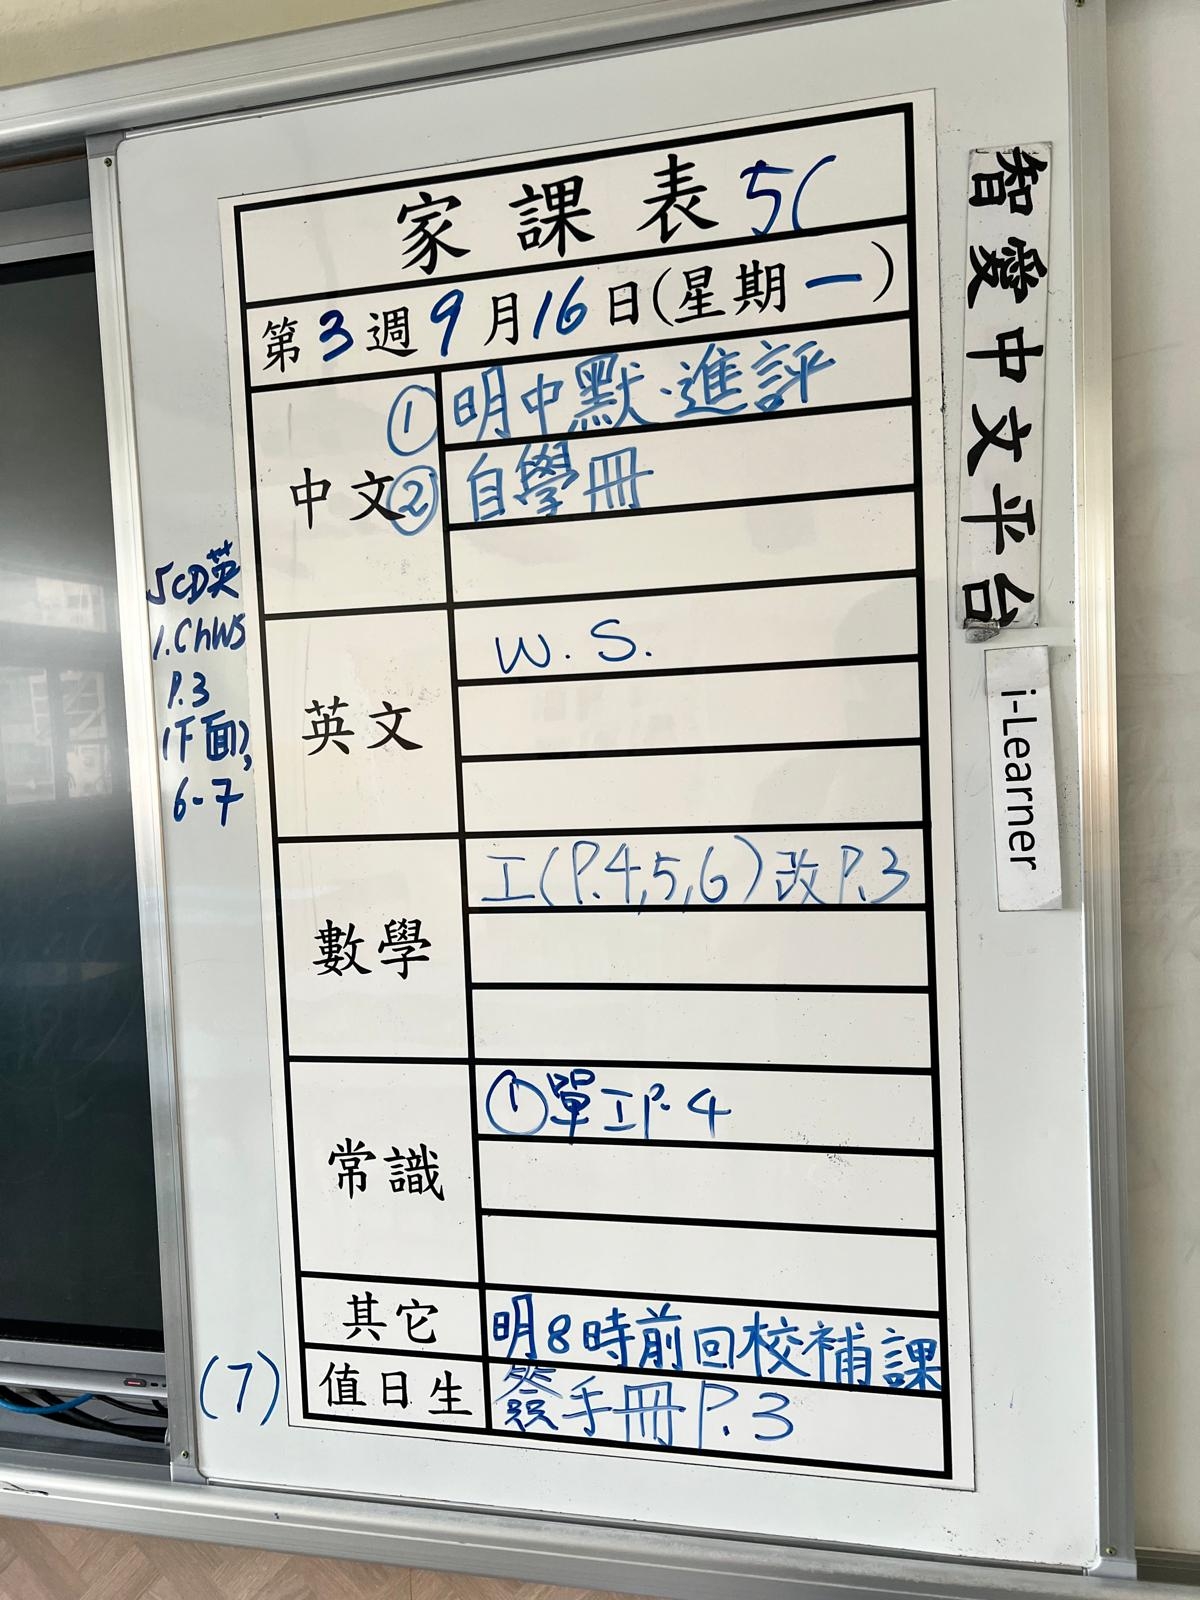 家課表 5C
第3週9月16日(星期一)
中文
① 明中默·進評
② 自學冊
英文
W.S.
數學
工(P.4,5,6)改P.3
常識
①單工P.4
其它
明8時前回校補課
值日生
簽手冊P.3
(7)
5CD英
1.ChWS
P.3
(下面),
6-7
智愛中文平台
i-Learner